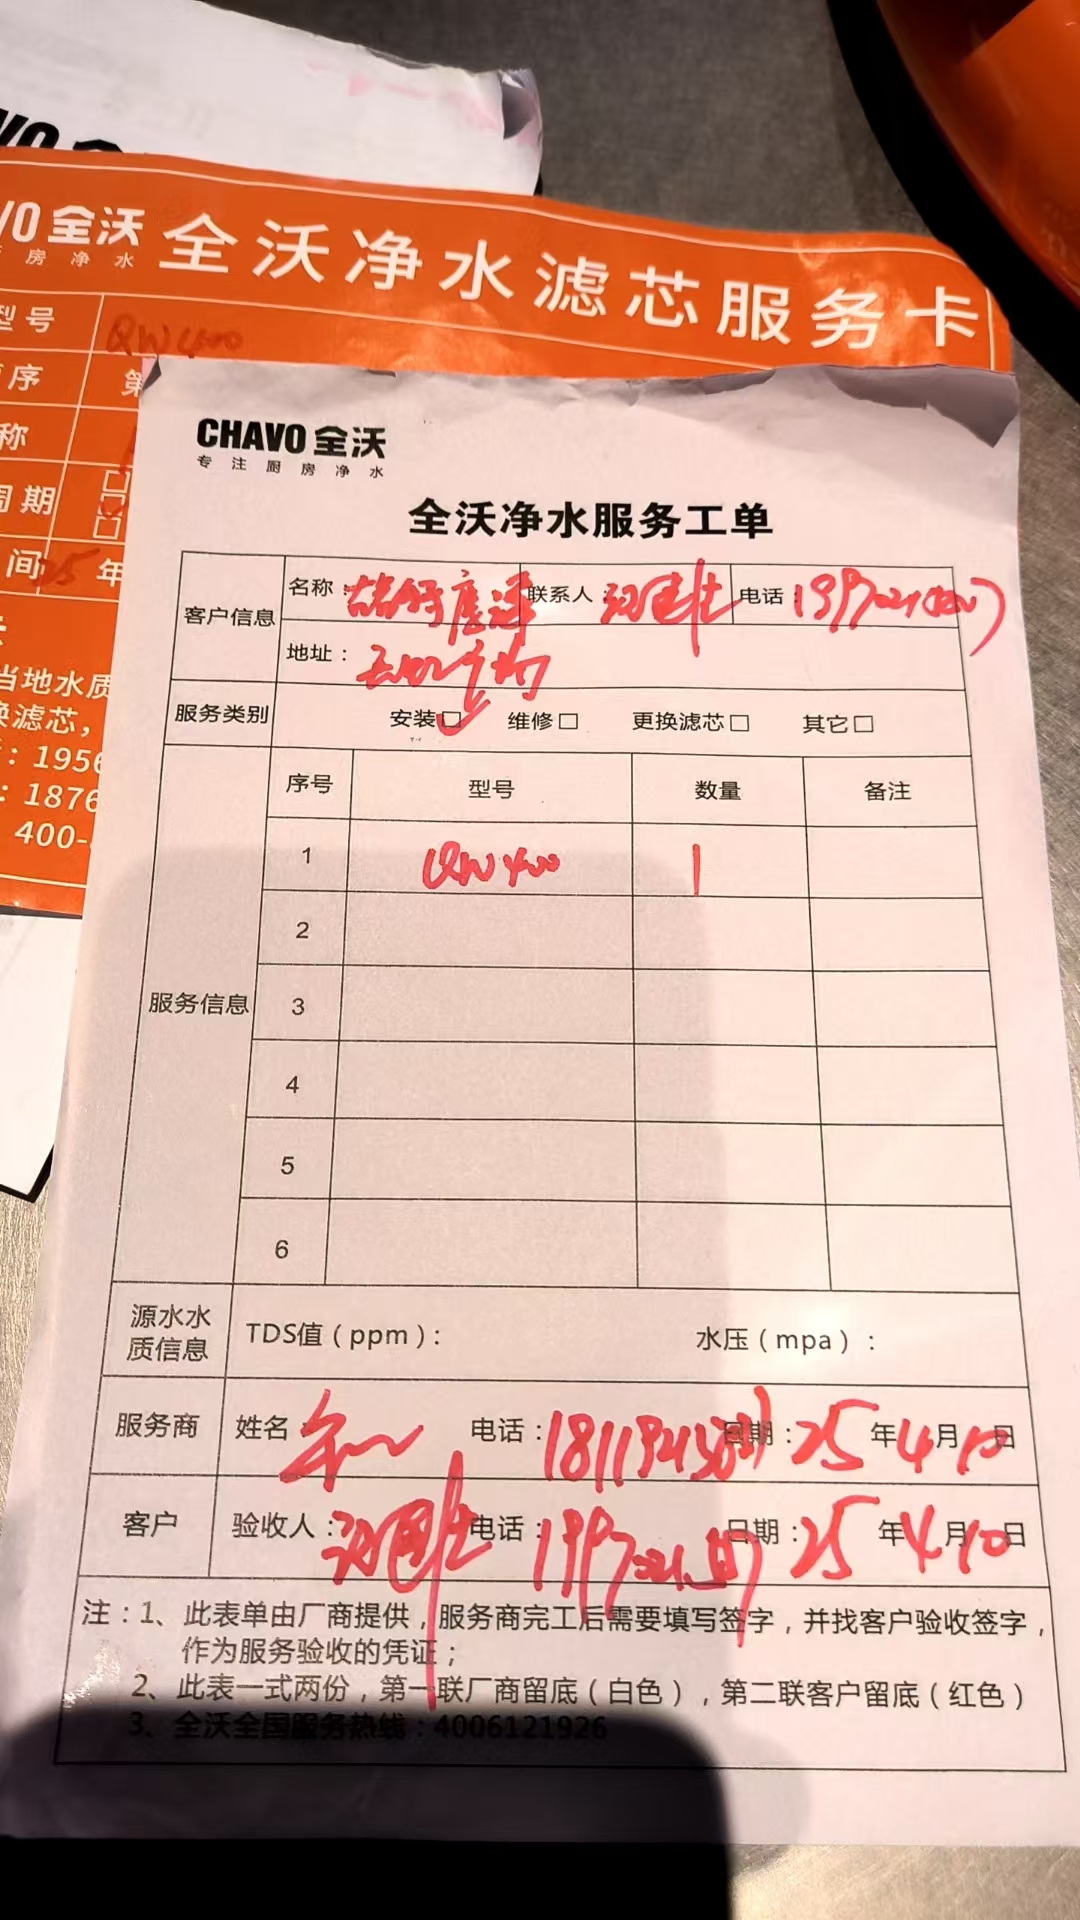 全沃
房净水
全沃净水滤芯服务卡
型号 QW400
序 第
称
周期
间 25年
当地水质
换滤芯，
：1956
：1876
400-
CHAVO 全沃
专注厨房净水
全沃净水服务工单
客户信息 名称： 联系人： 电话：
地址：
服务类别 安装☑ 维修□ 更换滤芯□ 其它□
服务信息 序号 型号 数量 备注
1 QW400 1
2
3
4
5
6
源水水质信息 TDS值（ppm）： 水压（mpa）：
服务商 姓名 电话： 日期：25年4月10日
客户 验收人： 电话： 日期：25年4月10日
注：1、此表单由厂商提供，服务商完工后需要填写签字，并找客户验收签字，
作为服务验收的凭证；
2、此表一式两份，第一联厂商留底（白色），第二联客户留底（红色）
3、全沃全国服务热线：4006121926